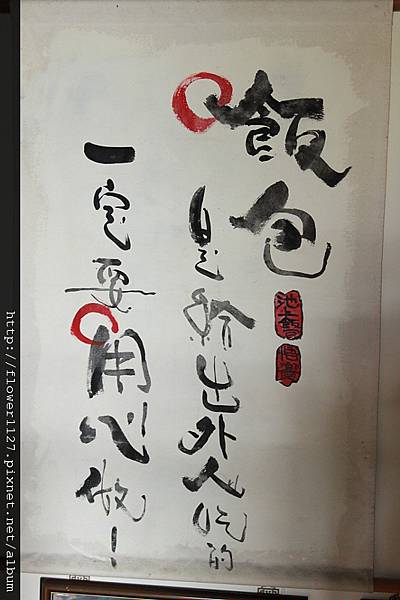 飯包
是給出外人吃的
一定要用心做！
http://flower1127.pixnet.net/album